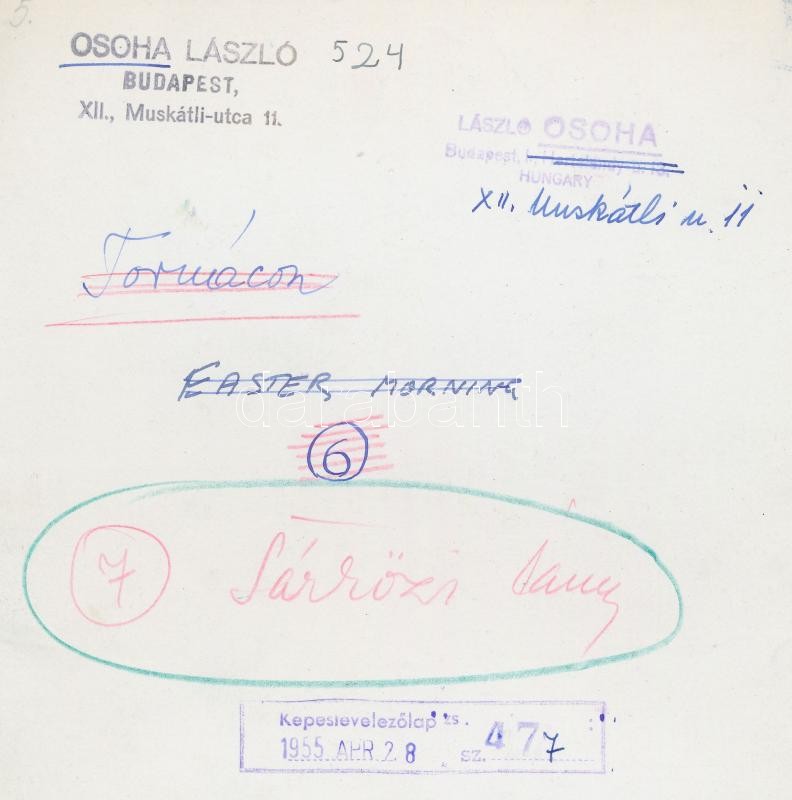 5.
OSOHA LÁSZLÓ 524
BUDAPEST,
XII., Muskátli-utca 11.
LÁSZLÓ OSOHA
Budapest, I.
HUNGARY
XII. Muskátli u. 11
Formácon
EASTER, MORNING
darabanth
6
7 Sárközi lány
Kepeslevelezőlap zs.
1955 APR 28 sz. 477